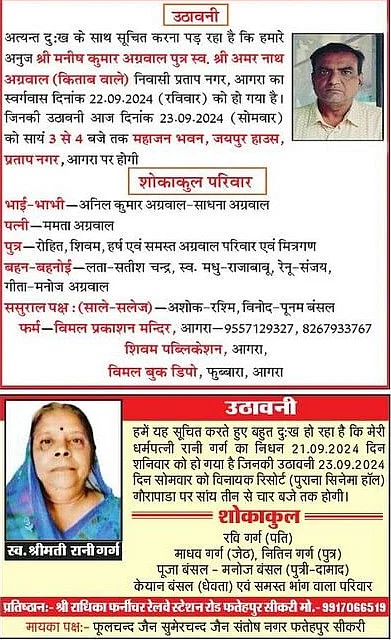 उठावनी
अत्यन्त दुःख के साथ सूचित करना पड़ रहा है कि हमारे
अनुज श्री मनीष कुमार अग्रवाल पुत्र स्व. श्री अमर नाथ
अग्रवाल (किताब वाले) निवासी प्रताप नगर, आगरा का
स्वर्गवास दिनांक 22.09.2024 (रविवार) को हो गया है।
जिनकी उठावनी आज दिनांक 23.09.2024 (सोमवार)
को सायं 3 से 4 बजे तक महाजन भवन, जयपुर हाउस,
प्रताप नगर, आगरा पर होगी
शोकाकुल परिवार
भाई-भाभी—अनिल कुमार अग्रवाल-साधना अग्रवाल
पत्नी—ममता अग्रवाल
पुत्र—रोहित, शिवम, हर्ष एवं समस्त अग्रवाल परिवार एवं मित्रगण
बहन-बहनोई—लता-सतीश चन्द्र, स्व. मधु-राजाबाबू, रेनू-संजय,
गीता-मनोज अग्रवाल
ससुराल पक्ष : (साले-सलेज)—अशोक-रश्मि, विनोद-पूनम बंसल
फर्म—विमल प्रकाशन मन्दिर, आगरा—9557129327, 8267933767
शिवम पब्लिकेशन, आगरा,
विमल बुक डिपो, फुब्बारा, आगरा
उठावनी
हमें यह सूचित करते हुए बहुत दुःख हो रहा है कि मेरी
धर्मपत्नी रानी गर्ग का निधन 21.09.2024 दिन
शनिवार को हो गया है जिनकी उठावनी 23.09.2024
दिन सोमवार को विनायक रिसोर्ट (पुराना सिनेमा हॉल)
गौरापाडा पर सांय तीन से चार बजे तक होगी।
स्व. श्रीमती रानी गर्ग
शोकाकुल
रवि गर्ग (पति)
माधव गर्ग (जेठ), नितिन गर्ग (पुत्र)
पूजा बंसल - मनोज बंसल (पुत्री-दामाद)
केयान बंसल (धेवता) एवं समस्त भांग वाला परिवार
प्रतिष्ठान:- श्री राधिका फर्नीचर रेलवे स्टेशन रोड फतेहपुर सीकरी मो.-9917066519
मायका पक्ष:- फूलचन्द जैन सुमेरचन्द जैन संतोष नगर फतेहपुर सीकरी